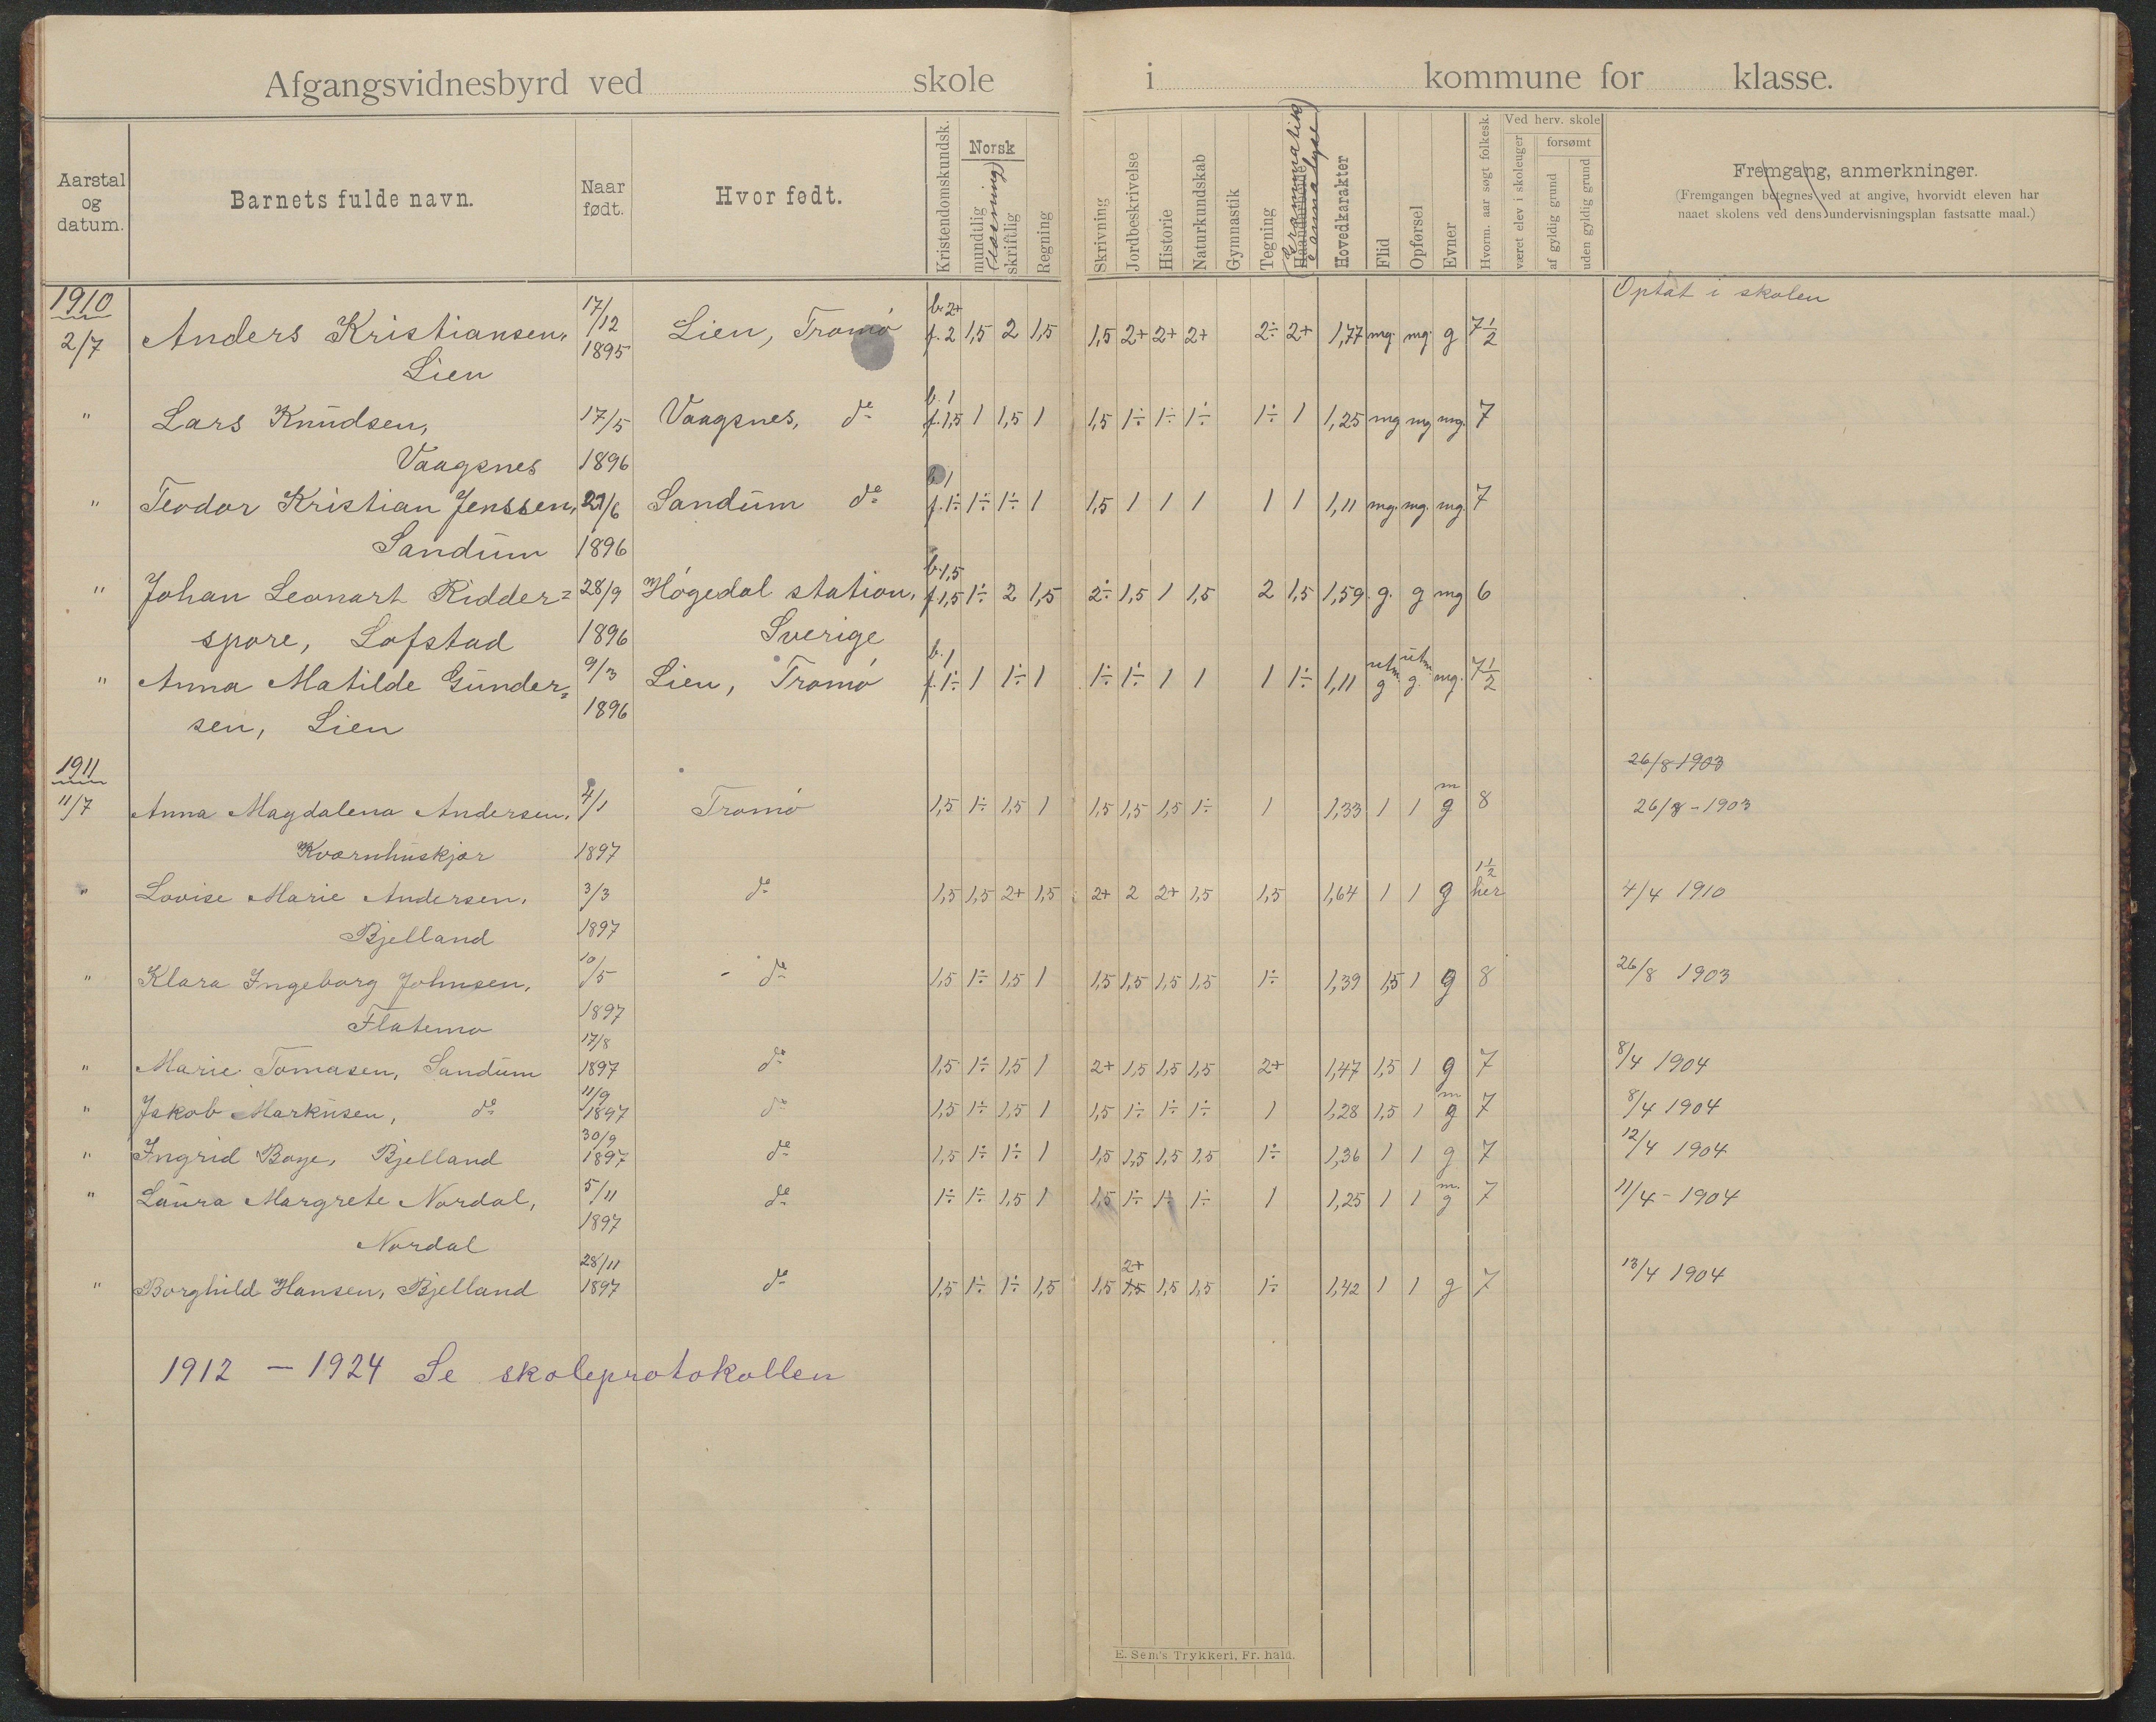 Afgangsvidnesbyrd ved skole i kommune for klasse.
Aarstal og datum. Barnets fulde navn. Naar født. Hvor født. Kristendomskundsk. Norsk mundtlig (læsning) skriftlig Regning Skrivning Jordbeskrivelse Historie Naturkundskab Gymnastik Tegning Haandgjerning (Grammatik & annalyse) Hovedkarakter Flid Opførsel Evner Hvorm. aar søgt folkesk. Ved herv. skole været elev i skoleuger forsømt af gyldig grund uden gyldig grund Fremgang, anmerkninger.
(Fremgangen betegnes ved at angive, hvorvidt eleven har
naaet skolens ved dens undervisningsplan fastsatte maal.)
1910 17/12 b. 2+ Optat i skolen
2/7 Anders Kristiansen, 1895 Lien, Tromø f. 2 1,5 2 1,5 1,5 2+ 2+ 2+ 2÷ 2+ 1,77 mg. mg. g 7½
Lien
b. 1
" Lars Knudsen, 17/5 Vaagsnes, do f. 1,5 1 1,5 1 1,5 1÷ 1÷ 1÷ 1÷ 1 1,25 mg mg mg. 7
Vaagsnes 1896
b 1
" Teodor Kristian Jenssen, 27/6 Sandum do f. 1÷ 1÷ 1÷ 1 1,5 1 1 1 1 1 1,11 mg. mg. mg. 7
Sandum 1896
b. 1,5
" Johan Leonart Ridder= 28/9 Høgedal station, f. 1,5 1÷ 2 1,5 2÷ 1,5 1 1,5 2 1,5 1,59 g. g mg 6
spore, Lofstad 1896 Sverige
b. 1
" Anna Matilde Gunder= 9/3 Lien, Tromø f. 1÷ 1 1÷ 1 1÷ 1÷ 1 1 1 1÷ 1,11 utm. g utm. g. mg. 7½
sen, Lien 1896
1911 26/8 1903
11/7 Anna Magdalena Andersen, 4/1 Tromø 1,5 1÷ 1,5 1 1,5 1,5 1,5 1÷ 1 1,33 1 1 mg 8 26/8 - 1903
Kværnhuskjær 1897
" Lovise Marie Andersen, 3/3 do 1,5 1,5 2+ 1,5 2+ 2 2+ 1,5 1,5 1,64 1 1 g 1½ her 4/4 1910
Bjelland 1897
" Klara Ingeborg Johnsen, 10/5 do 1,5 1÷ 1,5 1 1,5 1,5 1,5 1,5 1÷ 1,39 1,5 1 g 8 26/8 1903
Flatemo 1897
" Marie Tomasen, Sandum 17/8 1897 do 1,5 1÷ 1,5 1 2+ 1,5 1,5 1,5 2+ 1,47 1,5 1 g 7 8/4 1904
" Jakob Markusen, do 11/9 1897 do 1,5 1÷ 1,5 1 1,5 1÷ 1÷ 1÷ 1 1,28 1,5 1 mg 7 8/4 1904
" Ingrid Boye, Bjelland 30/9 1897 do 1,5 1÷ 1÷ 1 1,5 1,5 1,5 1,5 1÷ 1,36 1 1 g 7 12/4 1904
" Laura Margrete Nordal, 5/11 1897 do 1÷ 1÷ 1,5 1 1,5 1÷ 1÷ 1÷ 1 1,25 1 1 mg 7 11/4 - 1904
Nordal
" Borghild Hansen, Bjelland 28/11 1897 do 1,5 1÷ 1÷ 1,5 1,5 1,5 2+ 1,5 1,5 1÷ 1,42 1 1 g 7 13/4 1904
1912 — 1924 Se skoleprotokollen
E. Sem's Trykkeri, Fr. hald.